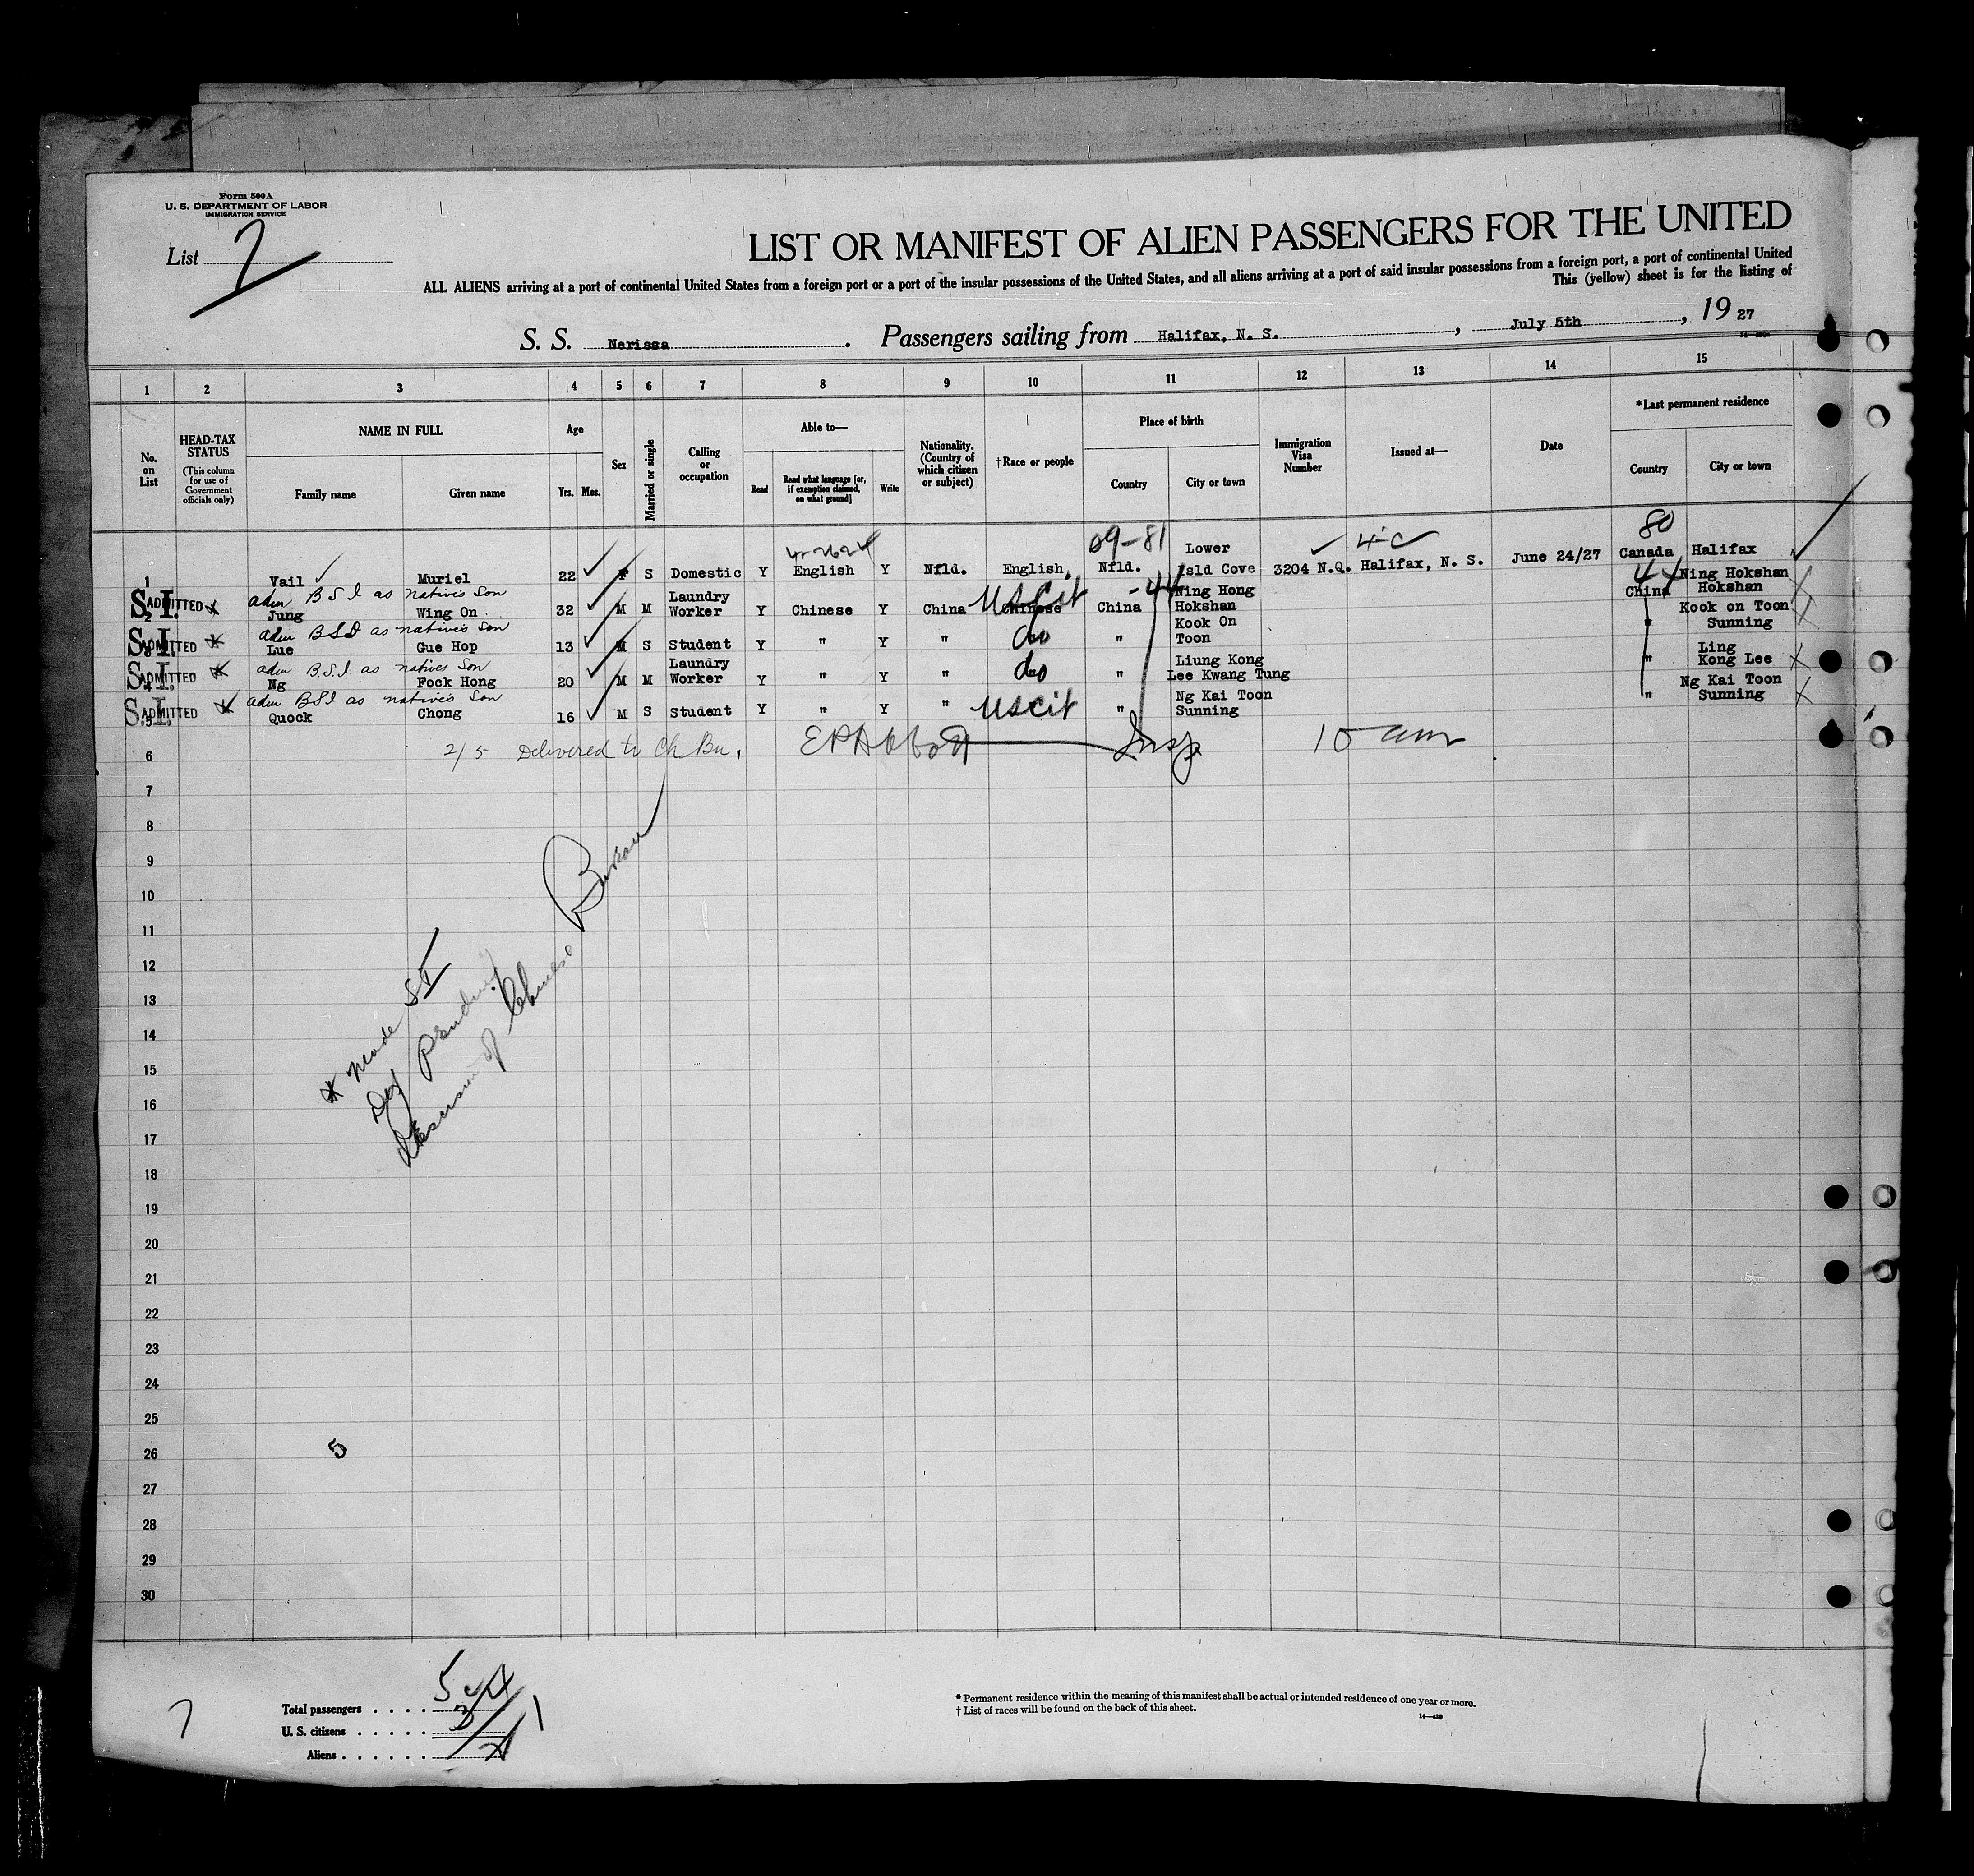 Form 500A
U. S. DEPARTMENT OF LABOR
IMMIGRATION SERVICE
List 2
LIST OR MANIFEST OF ALIEN PASSENGERS FOR THE UNITED
ALL ALIENS arriving at a port of continental United States from a foreign port or a port of the insular possessions of the United States, and all aliens arriving at a port of said insular possessions from a foreign port, a port of continental United
This (yellow) sheet is for the listing of
S. S. Nerissa. Passengers sailing from Halifax, N. S., July 5th, 19 27
1 2 3 4 5 6 7 8 9 10 11 12 13 14 15
No. on List
HEAD-TAX STATUS
(This column for use of Government officials only)
NAME IN FULL
Family name Given name
Age
Yrs. Mos.
Sex
Married or single
Calling or occupation
Able to—
Read
Read what language [or, if exemption claimed, on what ground]
Write
Nationality. (Country of which citizen or subject)
†Race or people
Place of birth
Country City or town
Immigration Visa Number
Issued at—
Date
*Last permanent residence
Country City or town
09-81 4-C 80
1 Vail Muriel 22 F S Domestic Y English Y Nfld. English Nfld. Lower Isld Cove 3204 N.Q. Halifax, N. S. June 24/27 Canada Halifax
adm BSI as native's son
S.I. ADMITTED 2 Jung Wing On 32 M M Laundry Worker Y Chinese Y China Chinese US Cit China -44 Ning Hong Hokshan 44 China Ning Hokshan Hokshan
adm BSI as native's son
S.I. ADMITTED Lue Gue Hop 13 M S Student Y " Y " do " Kook On Toon " Kook on Toon Sunning
adm B.S.I as natives son
S.I. ADMITTED 4 Ng Fock Hong 20 M M Laundry Worker Y " Y " do " Liung Kong Lee Kwang Tung " Ling Kong Lee
adm BSI as native's son
S.I. ADMITTED 5 Quock Chong 16 M S Student Y " Y " US Cit " Ng Kai Toon Sunning " Ng Kai Toon Sunning
6 2/5 Delivered to Ch Bu. EPAbbott Insp 10 am
7
8
9
10
11
12
13
14
15
16
17
18
19
20
21
22
23
24
25
26
27
28
29
30
* made SI
of Chinese
5
Total passengers . . . . 5
U. S. citizens . . . . .
Aliens . . . . . .
*Permanent residence within the meaning of this manifest shall be actual or intended residence of one year or more.
†List of races will be found on the back of this sheet.